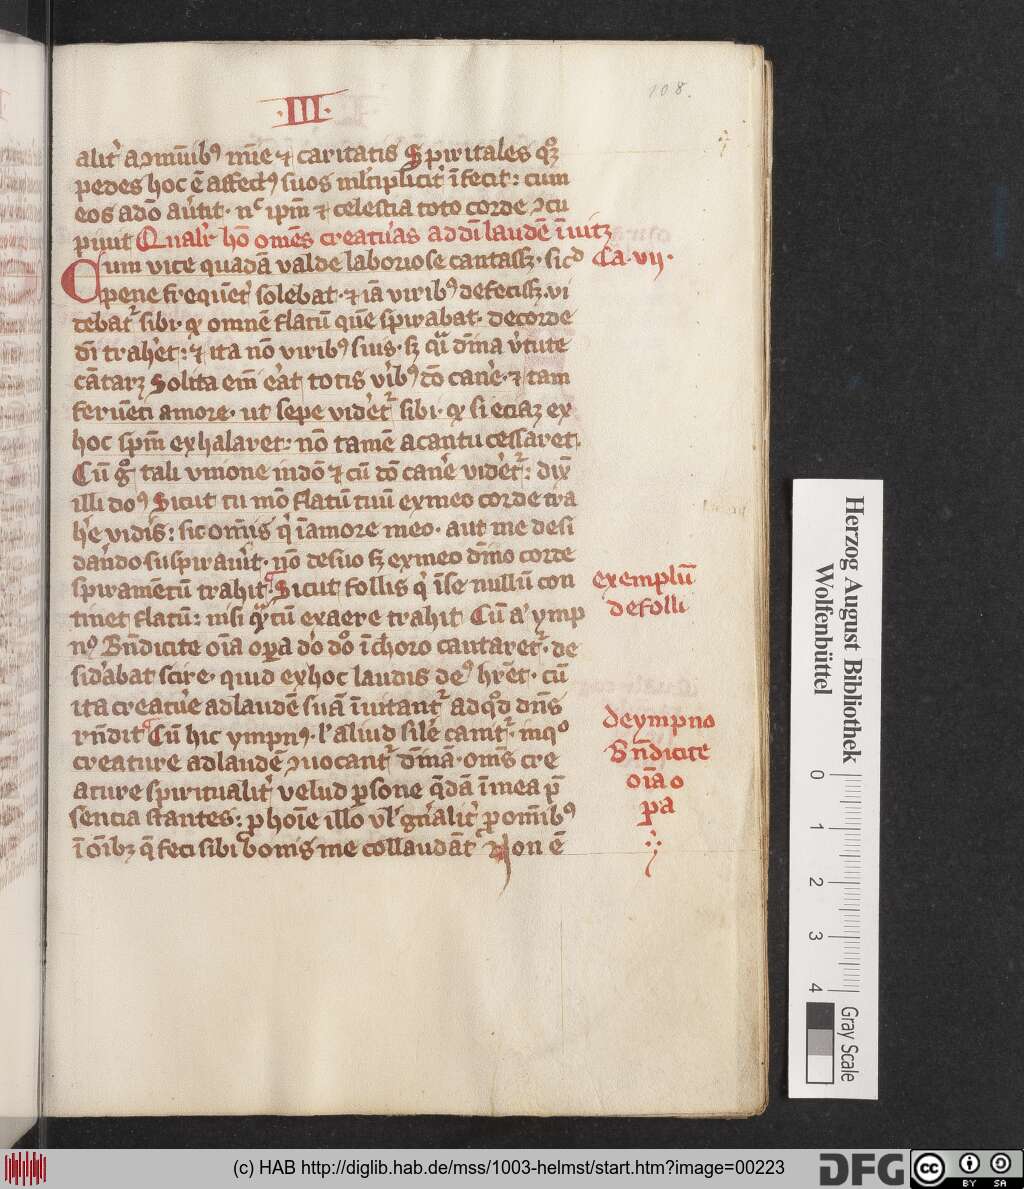 108.
·III·
alit᷑ a ꝯmūib⁹ mīe ⁊ caritatis Spiritales qͦꝫ
pedes hoc ē affect᷒ suos mltiplicit᷑ īfecit: cum
eos ad dō aūtit· n͛ ip̄m ⁊ celestia toto corde ꝯcu
piuit Qualr̄ hō om̄es creat᷑as ad dī laudē īuitꝫ
Cum vice quadā valde laboriose cantasꝫ· sicᵈ Cā· vij·
pene freq̄uet᷑ solebat· ⁊ iā virib⁹ defecisꝫ· vi
debat᷑ sibi· ꝙ omnē flatū quē sp̄irabat· de corde
dī trah᷑et: ⁊ ita nō virib⁹ suis· sꝫ q̄i diīna v᷑tute
cātarꝫ Solita eīm e᷑at totis v᷑ib⁹ dō can᷑e· ⁊ tam
feruēti amore· ut sepe vid᷑et᷑ sibi· ꝙ si eciaꝫ ex
hoc sp̄m exhalaret· nō tamē a cantu cessaret·
Cū gͦ tali vnione in dō ⁊ cū dō can᷑e vid᷑et᷑: dix̄
illi do⁹ Sicut tu mō flatū tuū ex meo corde tra
h᷑e vidis᷑: sic om̄is q̄ ī amore meo· aut me desi
dando suspirau᷑it· nō de suo sꝫ ex meo diīno corde
spiramētū trahit Sicut follis q̄ ī se nullū con
tinet flatū: nisi q̄ntū ex aere trahit Cū a᷑ ymp
n⁹ Bn̄dicite oīa oꝑa dōi dōo ī choro cantaret᷑· de
sid᷑abat scire· quid ex hoc laudis de⁹ hr̄et· cū
ita creat᷑e ad laudē suā īuitant᷑ ad qͦd dn̄s
rn̄dit Cū hic ympn⁹· l᷑ aliud sil᷑e canit᷑· in qͦ
creature ad laudē ꝯuocant᷑ diīnā· om̄s cre
ature spiritualit᷑ velud ꝑsone q̄dā ī mea p̄
sencia stantes: p hoīe illo vl᷑ gn᷑alit᷑ p om̄ib⁹
ī oīb⁹ q̄ feci sibi bonis me collaudāt Non ē
exemplū
de folli
de ympno
Bn̄dicite
oīa o
pa
Herzog August Bibliothek
Wolfenbüttel
0 1 2 3 4
Gray Scale
(c) HAB http://diglib.hab.de/mss/1003-helmst/start.htm?image=00223
DFG
cc
BY SA